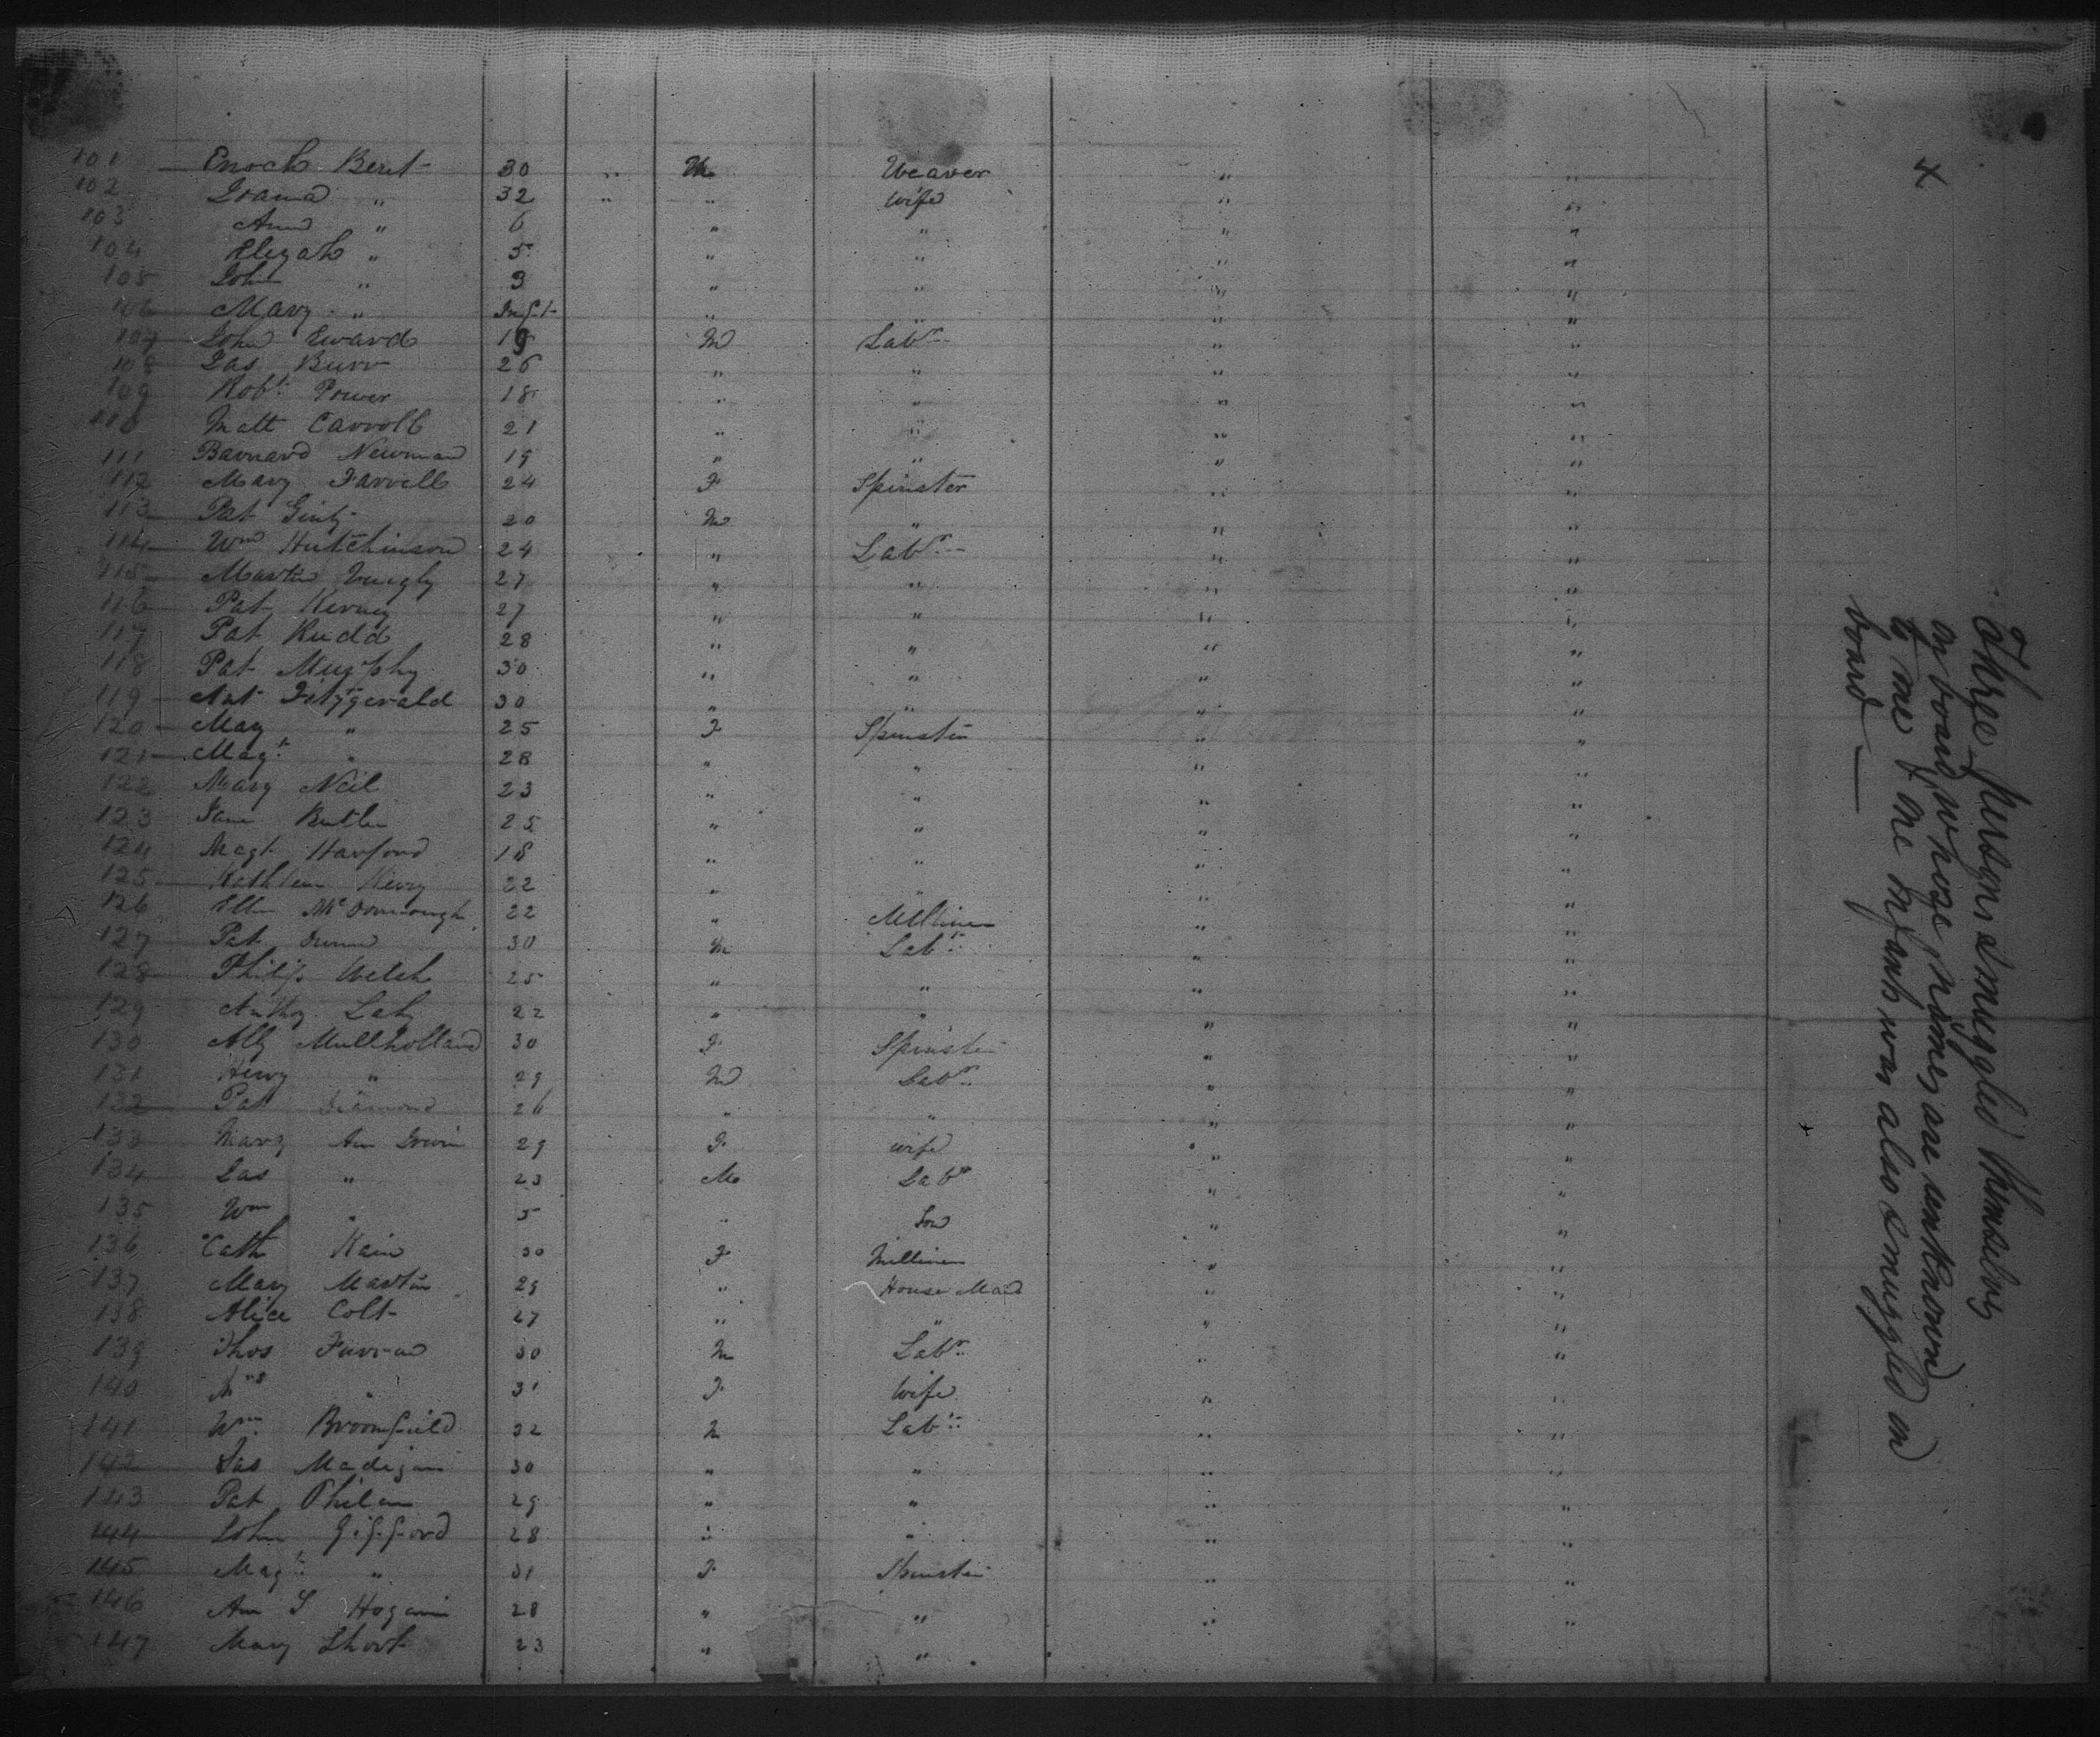 101 Enoch Bent 30 " M Weaver " "
102 Joana " 32 " " Wife " "
103 Ann " 6 " " " "
104 Elizah " 5 " " " "
105 John " 3 " " " "
106 Mary " Inft " " " "
107 John Eward 19 M Labr " "
108 Jas Burr 26 " " " "
109 Robt Power 18 " " " "
110 Matt Carroll 21 " " " "
111 Barnard Newman 19 " " " "
112 Mary Farrell 24 F Spinster " "
113 Pat Ginty 20 M " " "
114 Wm Hutchinson 24 " Labr " "
115 Martin 27 " " " "
116 Pat Kerney 27 " " " "
117 Pat Rudd 28 " " " "
118 Pat Murphy 30 " " " "
119 Nat Fitzgerald 30 " " " "
120 May " 25 F Spinster " "
121 Magt " 28 " " " "
122 Mary Neil 23 " " " "
123 Jane Butler 25 " " " "
124 Magt Harford 18 " " " "
125 Kathleen Henry 22 " " " "
126 Ellen McDonnough 22 " Milliner " "
127 Pat Dunn 30 M Labr " "
128 Philip Welsh 25 " " " "
129 Anthoy Lahy 22 " " " "
130 Ally Mullholland 30 F Spinster " "
131 Henry " 29 M Labr " "
132 Pat Diamond 26 " " " "
133 Mary Ann Irwin 29 F wife " "
134 Jas " 23 M Labr " "
135 Wm " 5 " Son " "
136 Cath Kain 30 F Milliner " "
137 Mary Martin 29 " House Maid " "
138 Alice Colt 27 " " " "
139 Thos Farran 30 M Labr " "
140 Mrs " 31 F Wife " "
141 Wm Broomfield 32 M Labr " "
142 Jas Madigan 30 " " " "
143 Pat Philan 29 " " " "
144 John Gifford 28 " " " "
145 Magt " 31 F Spinster " "
146 Ann S Hogan 28 " " " "
147 Mary Short 23 " "
4
Three persons smuggled themselves
on board whose names are unknown
to me & one infant was also smuggled on
board —